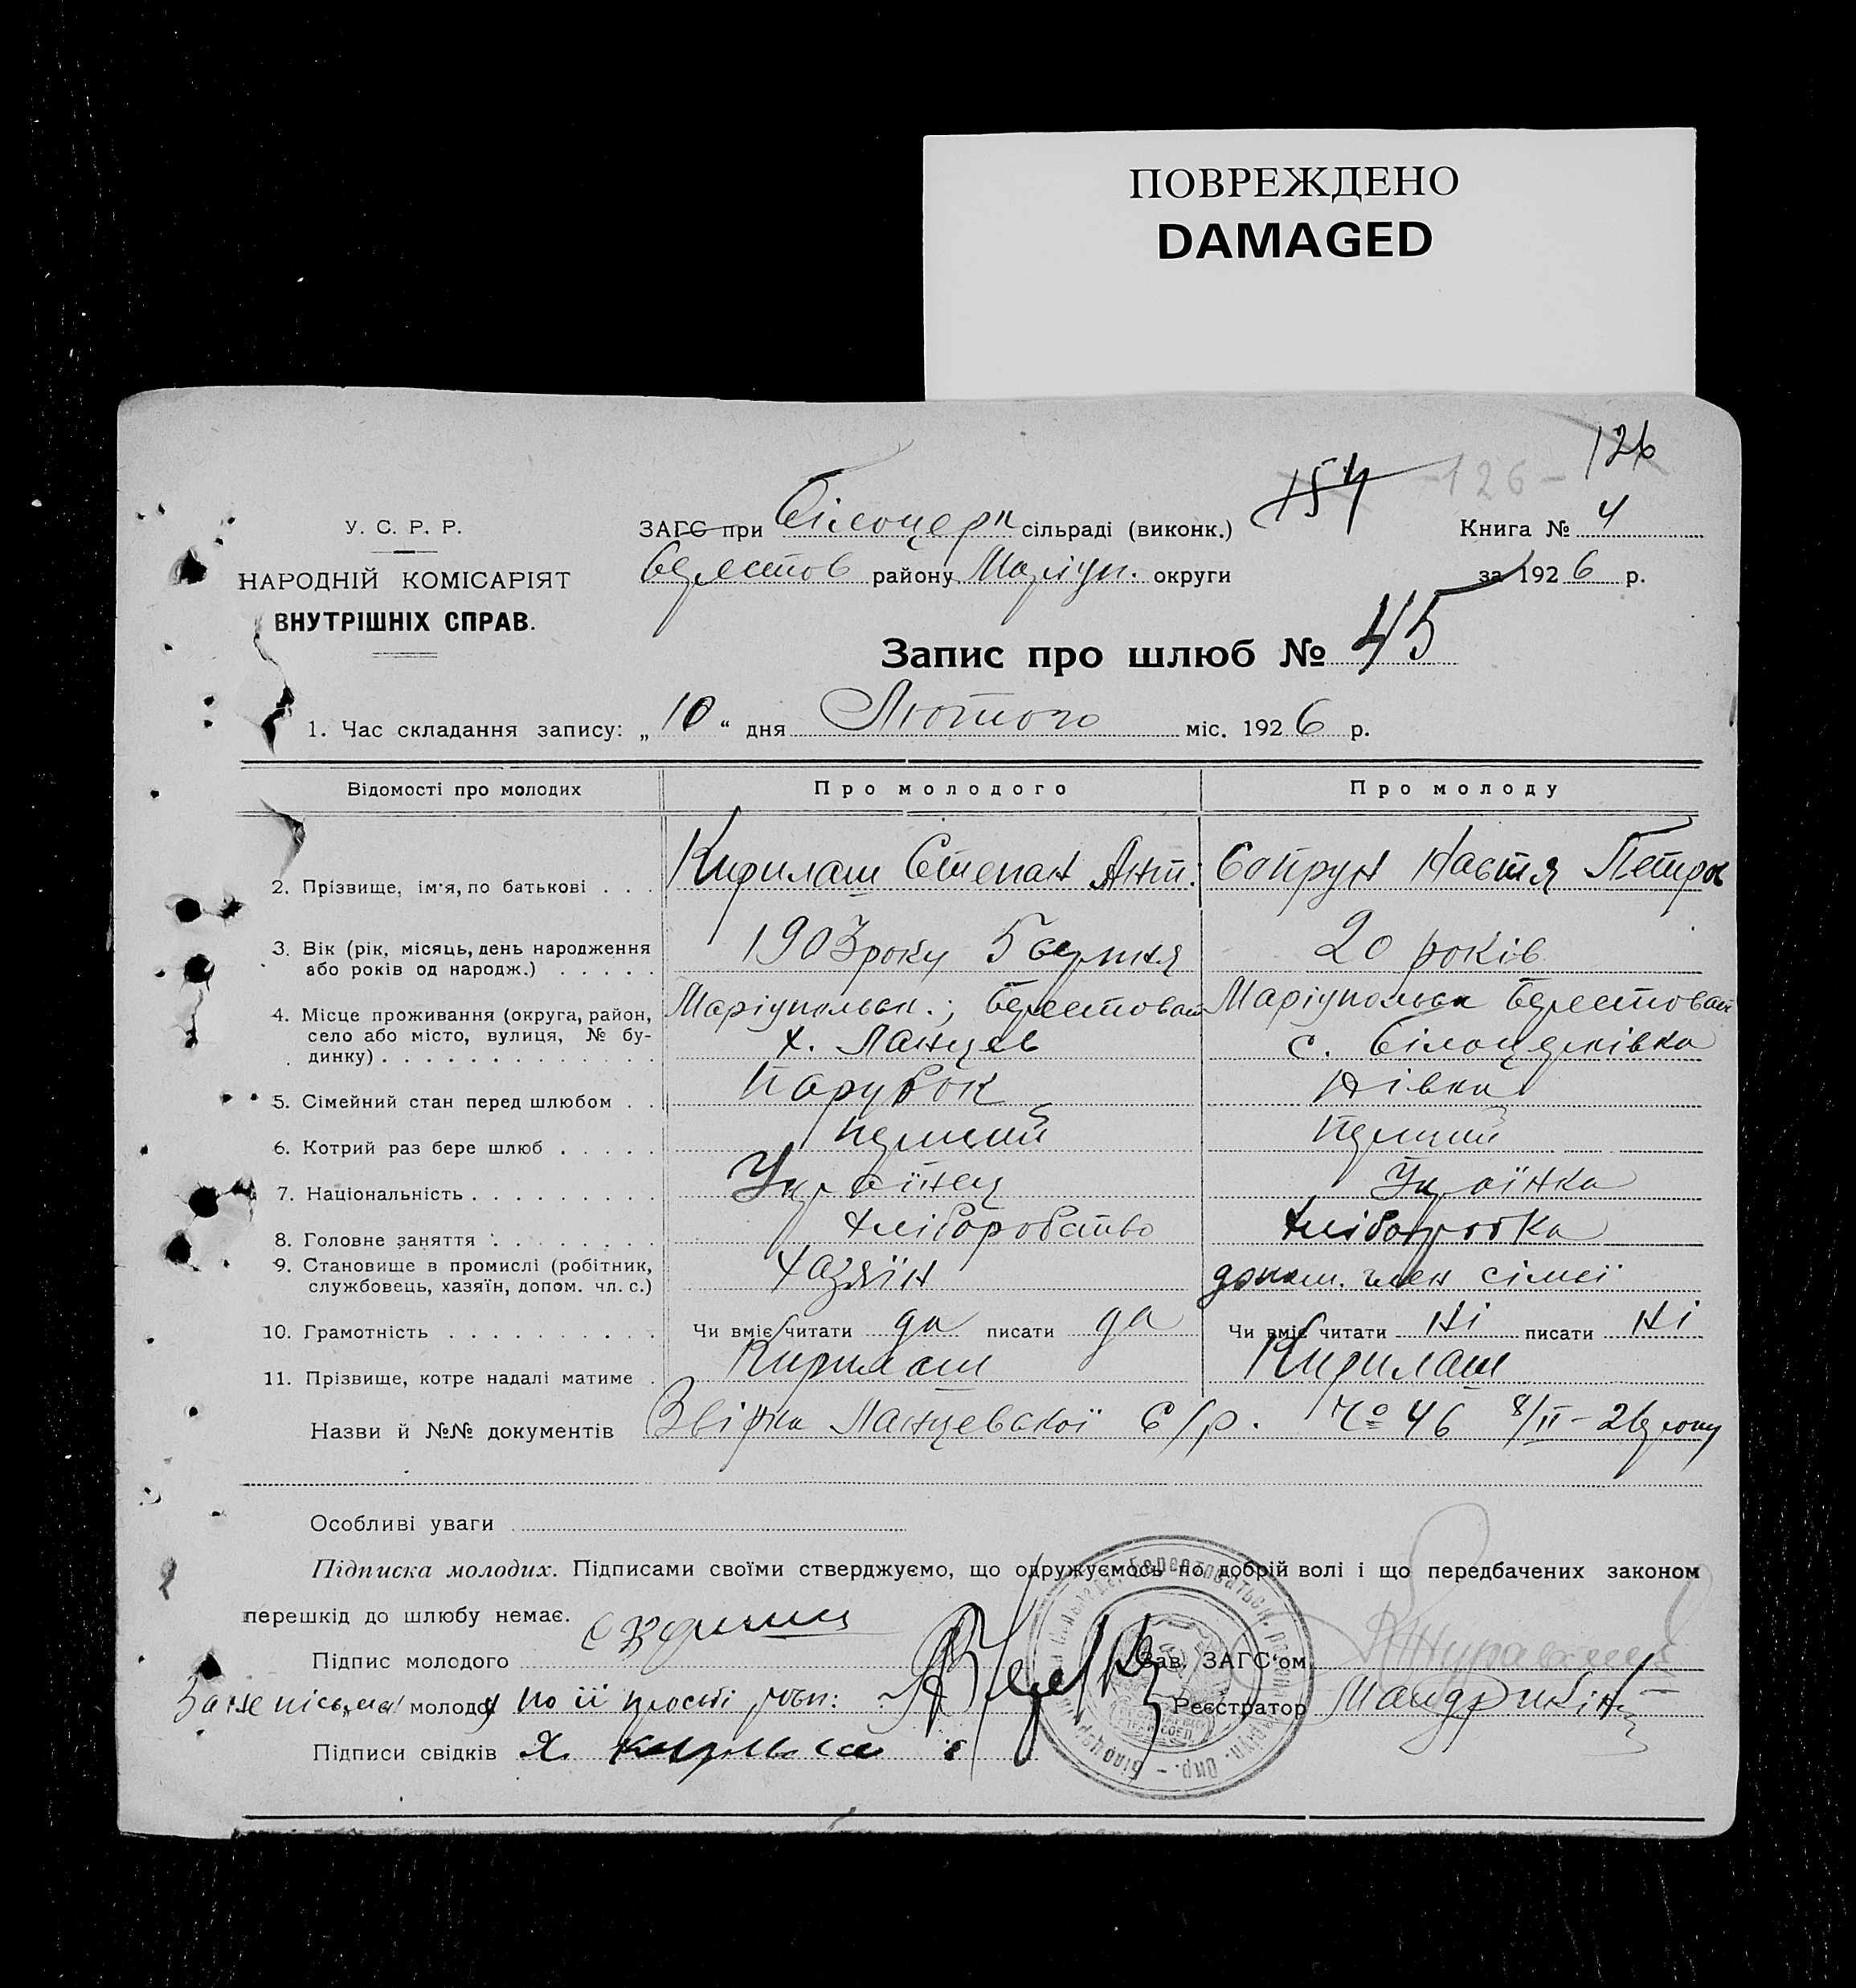 ПОВРЕЖДЕНО
DAMAGED
126
154 -126-
У. С. Р. Р.
ЗАГС при Білоцерк сільраді (виконк.)
Книга № 4
НАРОДНІЙ КОМІСАРІЯТ
ВНУТРІШНІХ СПРАВ.
Берестов району Маріуп. округи
за 1926 р.
Запис про шлюб № 45
1. Час складання запису: „10“ дня Лютого міс. 1926 р.
Відомості про молодих Про молодого Про молоду
2. Прізвище, ім'я, по батькові . . . Кирилаш Степан Ант. Сопрун Настя Петров
3. Вік (рік, місяць, день народження
або років од народж.) . . . . . 1903 року 5 серпня 20 років
4. Місце проживання (округа, район, Маріупольск.; Берестоват Маріупольск Берестоват
село або місто, вулиця, № бу-
динку) . . . . . . . . . . . . . х. Ланцев с. Білоцерківка
5. Сімейний стан перед шлюбом . . Парубок Дівка
6. Котрий раз бере шлюб . . . . . Перший Перший
7. Національність . . . . . . . . . Українец Українка
8. Головне заняття . . . . . . . . Хліборобство Хліборобка
9. Становище в промислі (робітник,
службовець, хазяїн, допом. чл. с.) Хазяїн допом. член сімєї
10. Грамотність . . . . . . . . . . Чи вміє читати да писати да Чи вміє читати ні писати ні
11. Прізвище, котре надалі матиме . Кирилаш Кирилаш
Назви й №№ документів Звірка Ланцевської С/р. № 46 8/II-26 року
Особливі уваги
Підписка молодих. Підписами своїми стверджуємо, що одружуємось по добрій волі і що передбачених законом
перешкід до шлюбу немає.
Підпис молодого
Зав. ЗАГС'ом
молодої по її просьбі росп:
Реєстратор
Підписи свідків